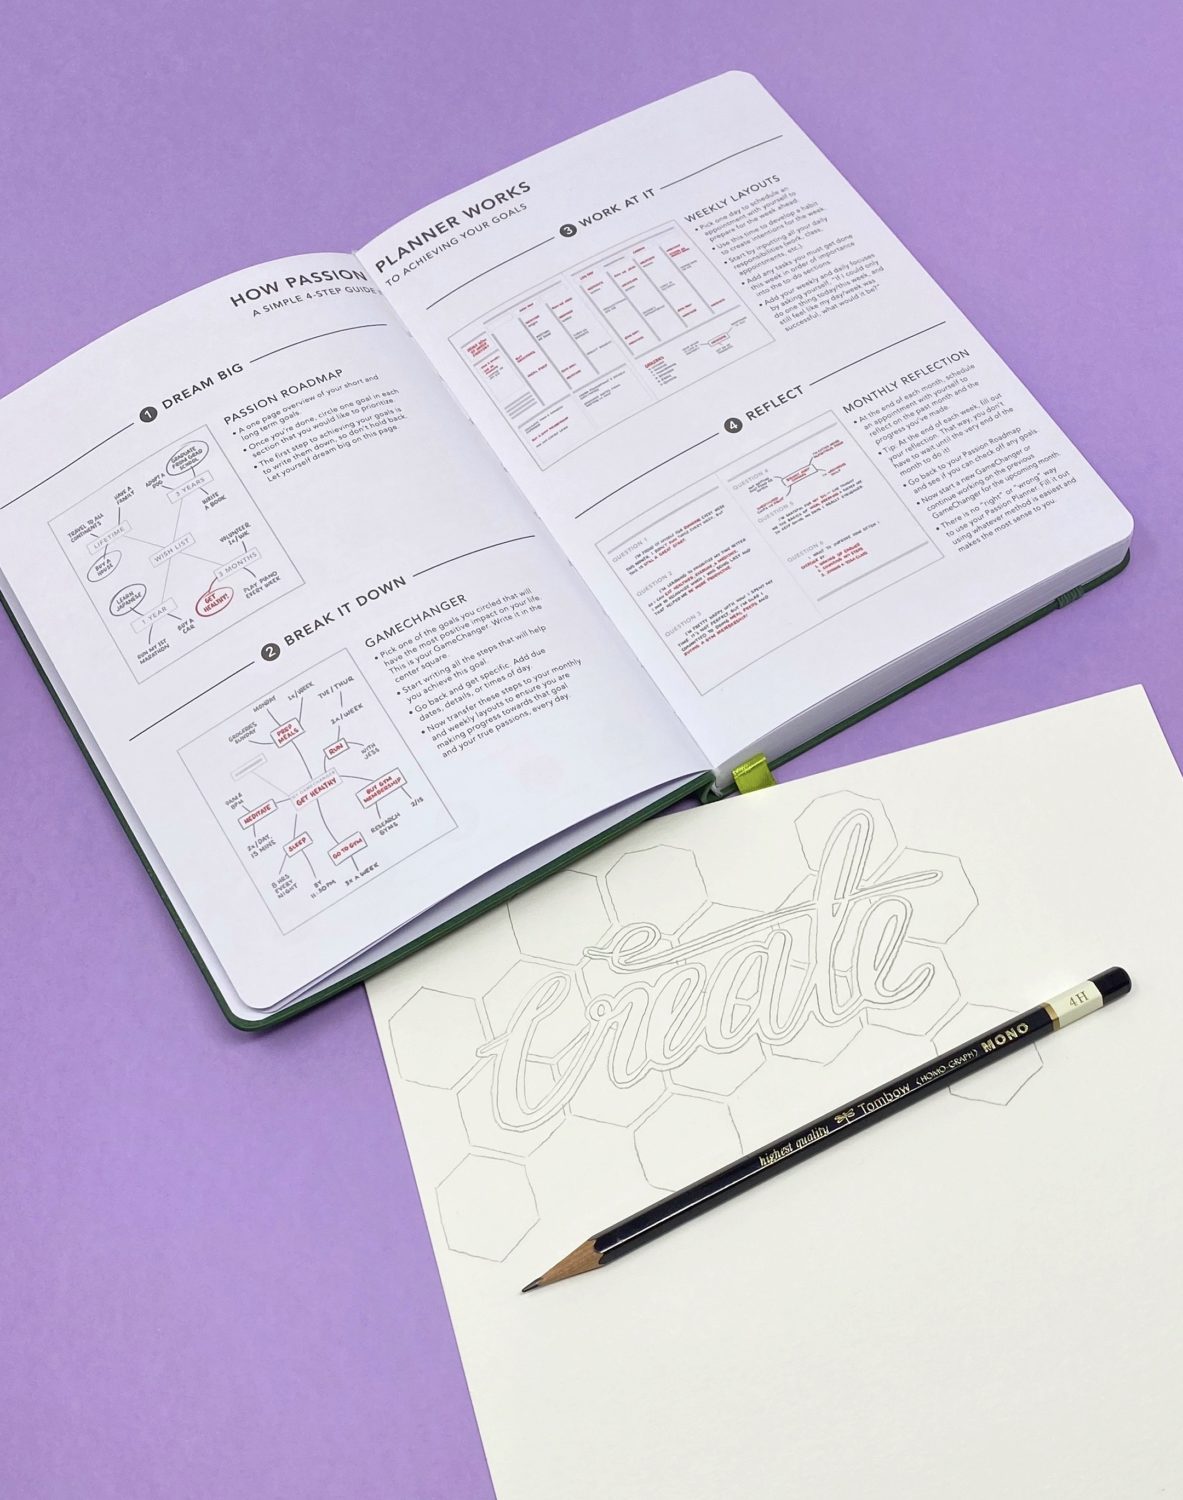 HOW PASSION PLANNER WORKS
A SIMPLE 4-STEP GUIDE TO ACHIEVING YOUR GOALS
1 DREAM BIG
PASSION ROADMAP
• A one page overview of your short and
long term goals.
• Once you're done, circle one goal in each
section that you would like to prioritize
• The first step to achieving your goals is
to write them down, so don't hold back.
Let yourself dream big on this page.
GRADUATE
FROM GRAD
SCHOOL
ADOPT A
DOG
3 YEARS
HAVE A
FAMILY
WRITE
A BOOK
TRAVEL TO ALL
CONTINENTS
LIFETIME
BUY A
HOUSE
WISH LIST
VOLUNTEER
1x/WK.
3 MONTHS
LEARN
JAPANESE
GET
HEALTHY!
PLAY PIANO
EVERY WEEK
1 YEAR
BUY A
CAR
RUN MY 1ST
MARATHON
2 BREAK IT DOWN
GAMECHANGER
• Pick one of the goals you circled that will
have the most positive impact on your life.
This is your GameChanger. Write it in the
center square.
• Start writing all the steps that will help
you achieve this goal.
• Go back and get specific. Add due
dates, details, or times of day.
• Now transfer these steps to your monthly
and weekly layouts to ensure you are
making progress towards that goal
and your true passions, every day.
MONDAY
1x/WEEK
TUE / THUR
GROCERIES
SUNDAY
PREP
MEALS
2x/WEEK
RUN
WITH
JESS
MY GAMECHANGER
GET HEALTHY
BUY GYM
MEMBERSHIP
2/15
RESEARCH
GYMS
MEDITATE
2x/DAY,
15 MINS
SLEEP
GO TO GYM
8 HRS
EVERY
NIGHT
BY
11:30PM
3x A WEEK
3 WORK AT IT
WEEKLY LAYOUTS
• Pick one day to schedule an
appointment with yourself to
prepare for the week ahead.
• Use this time to develop a habit
to create intentions for the week.
• Start by inputting all your daily
responsibilities (work, class,
appointments, etc.)
• Add any tasks you must get done
this week in order of importance
into the to-do sections.
• Add your weekly and daily focuses
by asking yourself, "If I could only
do one thing today/this week, and
still feel like my day/week was
successful, what would it be?"
4 REFLECT
MONTHLY REFLECTION
• At the end of each month, schedule
an appointment with yourself to
reflect on the past month and the
progress you've made.
• Tip: At the end of each week, fill out
your reflection. That way, you don't
have to wait until the very end of the
month to do it!
• Go back to your Passion Roadmap
and see if you can check off any goals.
• Now start a new GameChanger or
continue working on the previous
GameChanger for the upcoming month.
• There is no "right" or "wrong" way
to use your Passion Planner. Fill it out
using whatever method is easiest and
makes the most sense to you.
QUESTION 1
THIS IS STILL A GREAT START.
QUESTION 2
QUESTION 3
BUYING A GYM MEMBERSHIP!
QUESTION 4
QUESTION 5
QUESTION 6
create
highest quality Tombow (HOMO-GRAPH) MONO 4H